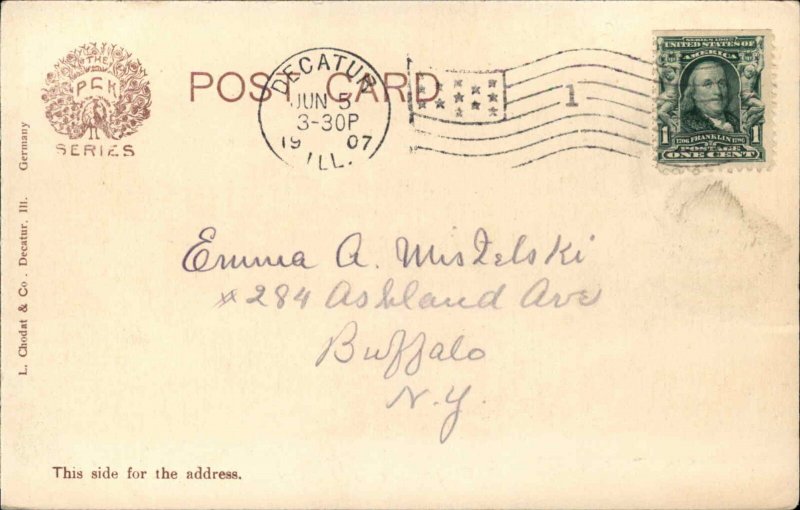 THE
PCK
SERIES
POST CARD
DECATUR
JUN 5
3-30P
1907
ILL.
1
SERIES 1902
UNITED STATES OF
AMERICA
1706 FRANKLIN 1790
1 1
POSTAGE
ONE CENT
L. Chodat & Co. Decatur, Ill. Germany
Emma A. Mistelski
#284 Ashland Ave
Buffalo
N.Y.
This side for the address.